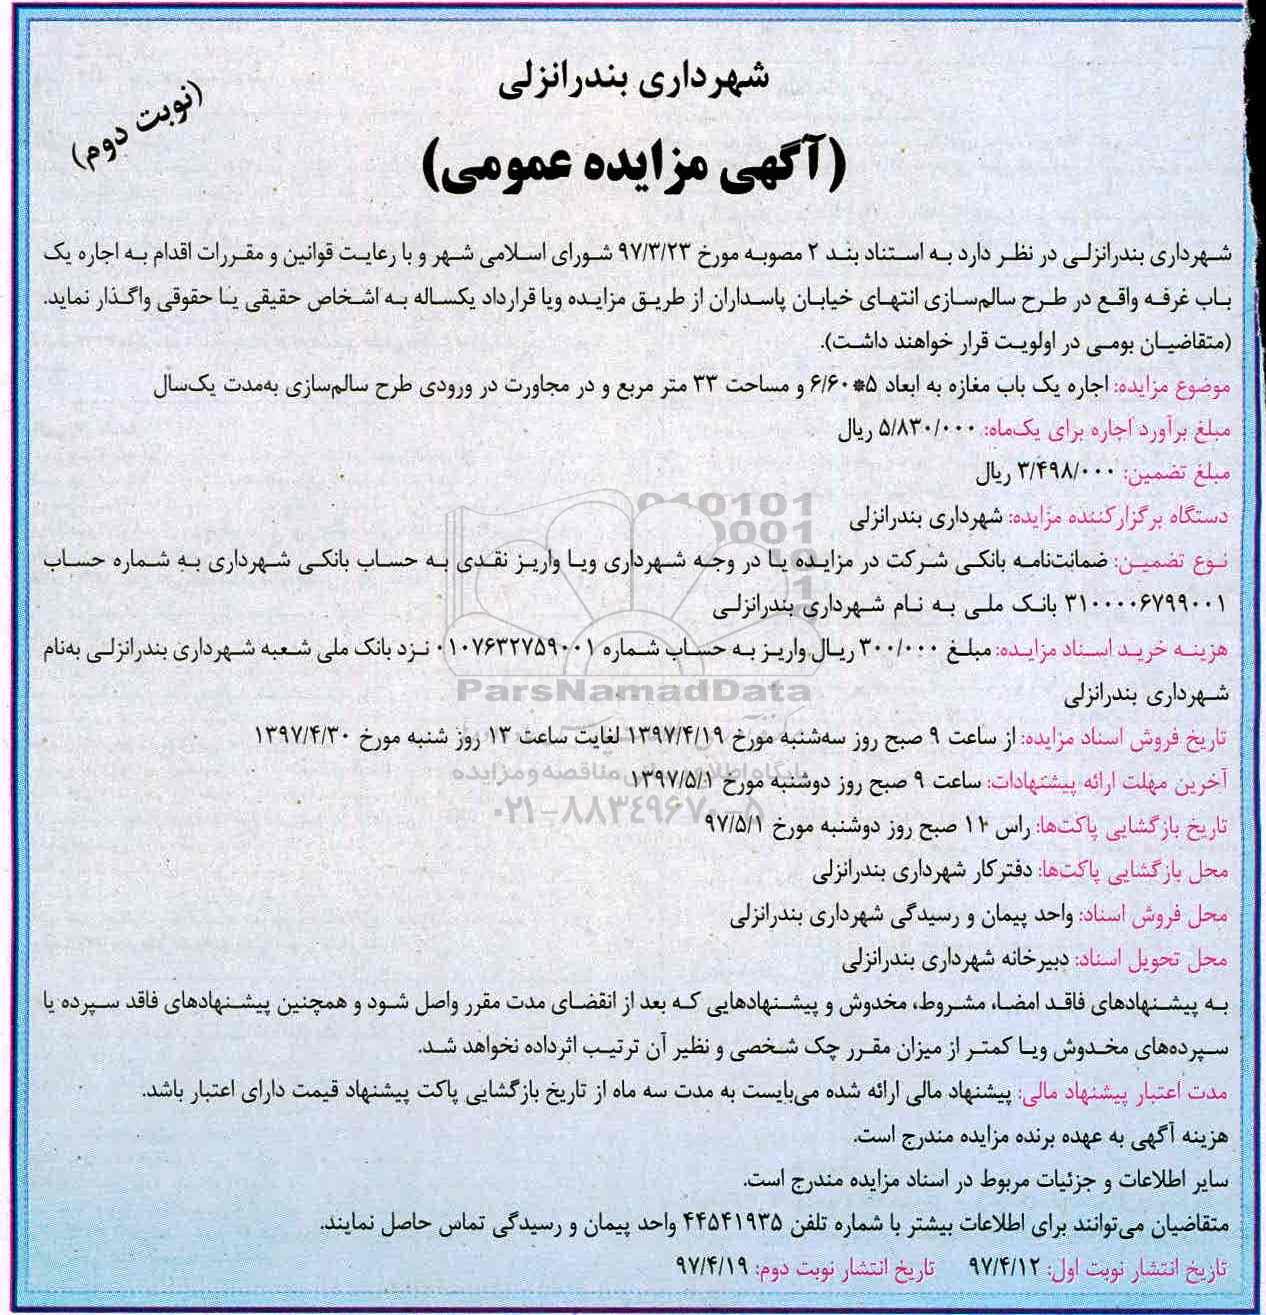 شهرداری بندرانزلی
(نوبت دوم)
(آگهی مزایده عمومی)
شهرداری بندرانزلی در نظر دارد به استناد بند ۲ مصوبه مورخ ۹۷/۳/۲۳ شورای اسلامی شهر و با رعایت قوانین و مقررات اقدام به اجاره یک
باب غرفه واقع در طرح سالم‌سازی انتهای خیابان پاسداران از طریق مزایده ویا قرارداد یکساله به اشخاص حقیقی یا حقوقی واگذار نماید.
(متقاضیان بومی در اولویت قرار خواهند داشت).
موضوع مزایده: اجاره یک باب مغازه به ابعاد ۵*۶/۶۰ و مساحت ۳۳ متر مربع و در مجاورت در ورودی طرح سالم‌سازی به‌مدت یک‌سال
مبلغ برآورد اجاره برای یک‌ماه: ۵/۸۳۰/۰۰۰ ریال
مبلغ تضمین: ۳/۴۹۸/۰۰۰ ریال
دستگاه برگزارکننده مزایده: شهرداری بندرانزلی
نوع تضمین: ضمانت‌نامه بانکی شرکت در مزایده یا در وجه شهرداری ویا واریز نقدی به حساب بانکی شهرداری به شماره حساب
۳۱۰۰۰۰۶۷۹۹۰۰۱ بانک ملی به نام شهرداری بندرانزلی
هزینه خرید اسناد مزایده: مبلغ ۳۰۰/۰۰۰ ریال واریز به حساب شماره ۰۱۰۷۶۳۲۷۵۹۰۰۱ نزد بانک ملی شعبه شهرداری بندرانزلی به‌نام
شهرداری بندرانزلی
تاریخ فروش اسناد مزایده: از ساعت ۹ صبح روز سه‌شنبه مورخ ۱۳۹۷/۴/۱۹ لغایت ساعت ۱۳ روز شنبه مورخ ۱۳۹۷/۴/۳۰
آخرین مهلت ارائه پیشنهادات: ساعت ۹ صبح روز دوشنبه مورخ ۱۳۹۷/۵/۱
تاریخ بازگشایی پاکت‌ها: راس ۱۱ صبح روز دوشنبه مورخ ۹۷/۵/۱
محل بازگشایی پاکت‌ها: دفترکار شهرداری بندرانزلی
محل فروش اسناد: واحد پیمان و رسیدگی شهرداری بندرانزلی
محل تحویل اسناد: دبیرخانه شهرداری بندرانزلی
به پیشنهادهای فاقد امضا، مشروط، مخدوش و پیشنهادهایی که بعد از انقضای مدت مقرر واصل شود و همچنین پیشنهادهای فاقد سپرده یا
سپرده‌های مخدوش ویا کمتر از میزان مقرر چک شخصی و نظیر آن ترتیب اثرداده نخواهد شد.
مدت اعتبار پیشنهاد مالی: پیشنهاد مالی ارائه شده می‌بایست به مدت سه ماه از تاریخ بازگشایی پاکت پیشنهاد قیمت دارای اعتبار باشد.
هزینه آگهی به عهده برنده مزایده مندرج است.
سایر اطلاعات و جزئیات مربوط در اسناد مزایده مندرج است.
متقاضیان می‌توانند برای اطلاعات بیشتر با شماره تلفن ۴۴۵۴۱۹۳۵ واحد پیمان و رسیدگی تماس حاصل نمایند.
تاریخ انتشار نوبت اول: ۹۷/۴/۱۲ تاریخ انتشار نوبت دوم: ۹۷/۴/۱۹
010101
0001
10
1
ParsNamadData
پایگاه اطلاع رسانی مناقصه و مزایده
۰۲۱-۸۸۳۴۹۶۷۰-۵